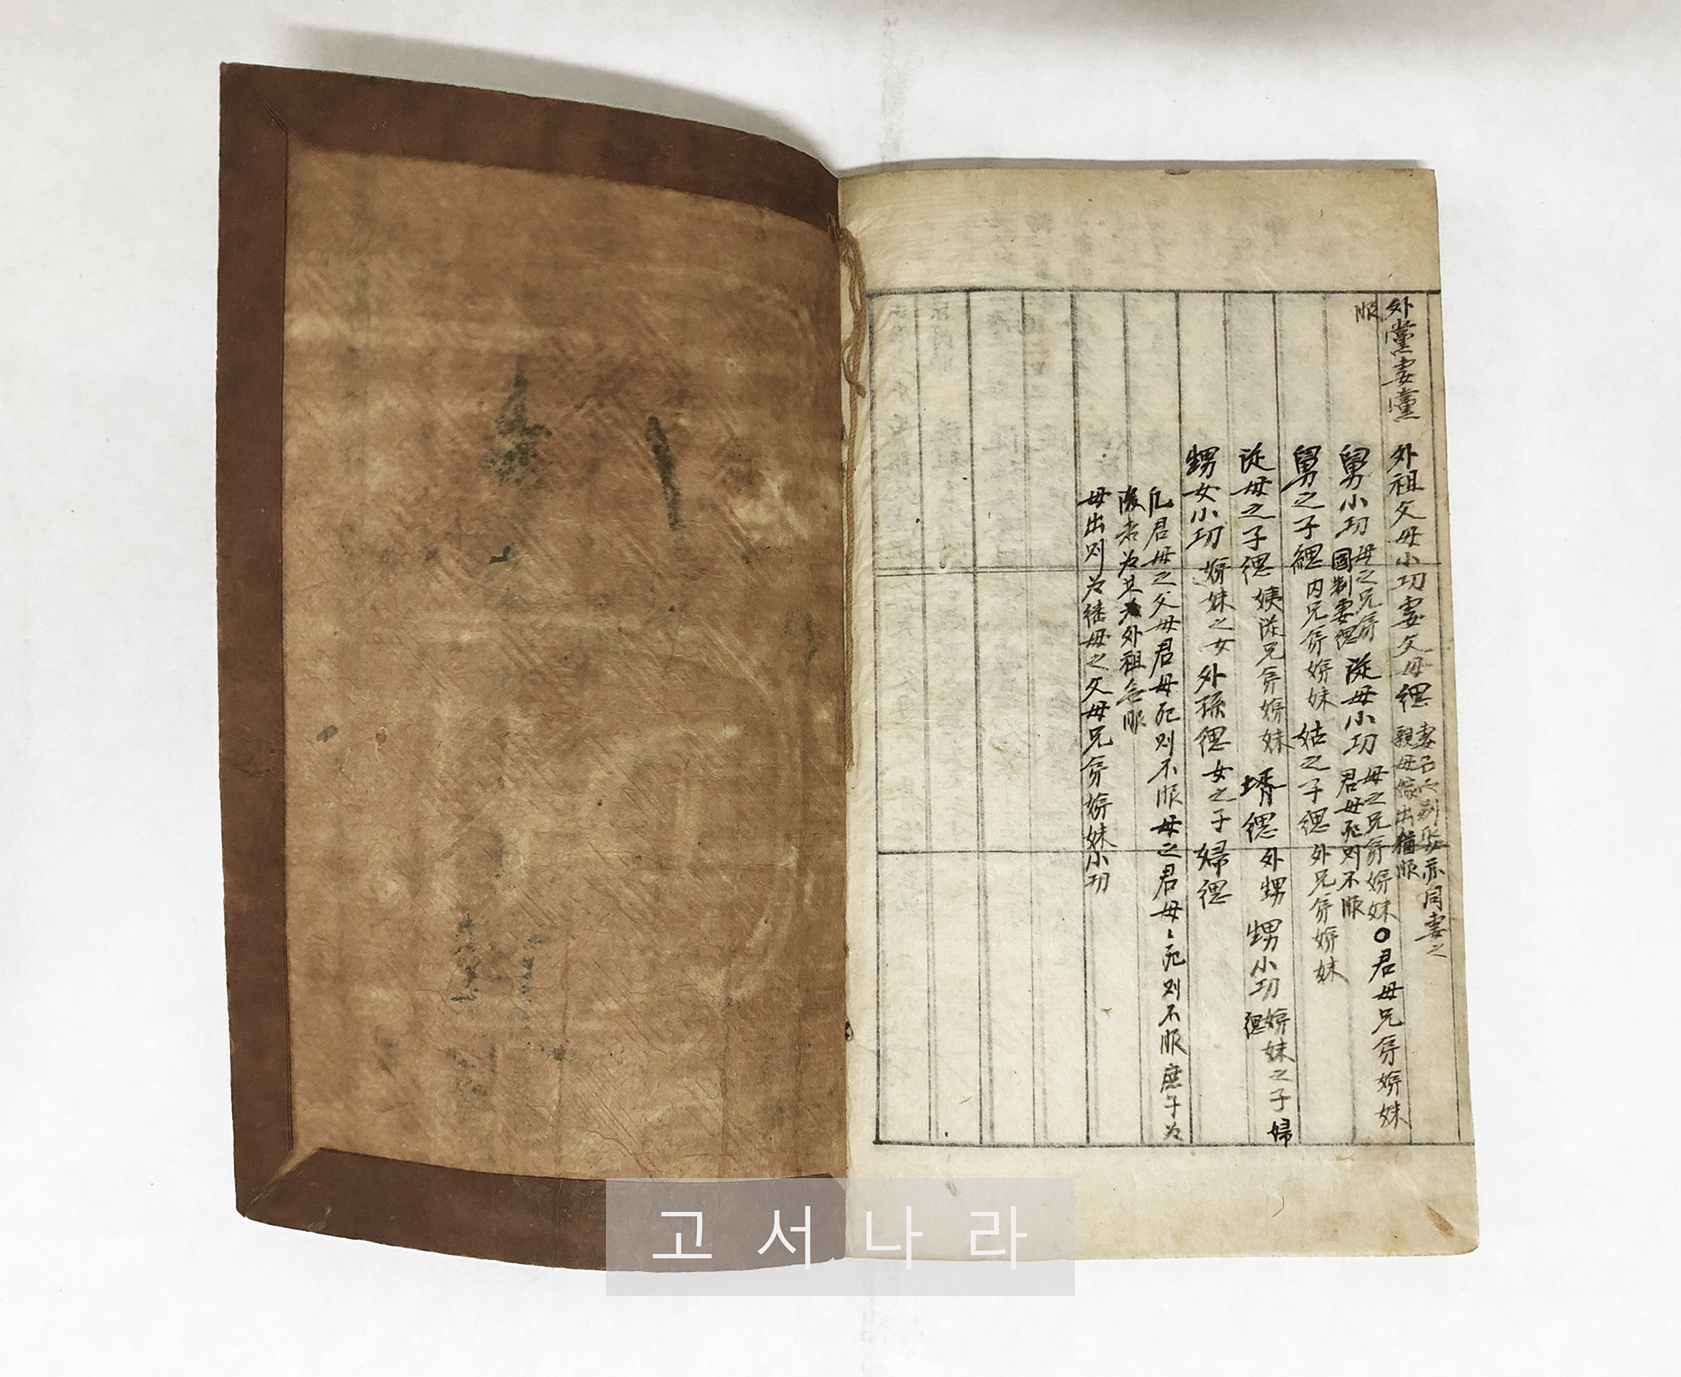 外黨妻黨
服
外祖父母小功妻父母緦 妻亡而別娶亦同妻之
親母嫁出猶服
舅小功 母之兄弟
國制妻緦 從母小功 母之兄弟姊妹○君母兄弟姊妹
君母死則不服
舅之子緦 內兄弟姊妹 姑之子緦 外兄弟姊妹
從母之子緦 姨從兄弟姊妹 壻緦 外甥 甥小功 姊妹之子 婦
緦
甥女小功 姊妹之女 外孫緦 女之子 婦緦
凡君母之父母君母死則不服母之君母〻死則不服庶子为
後者为其为外祖無服
母出則为継母之父母兄弟姊妹小功
고서나라